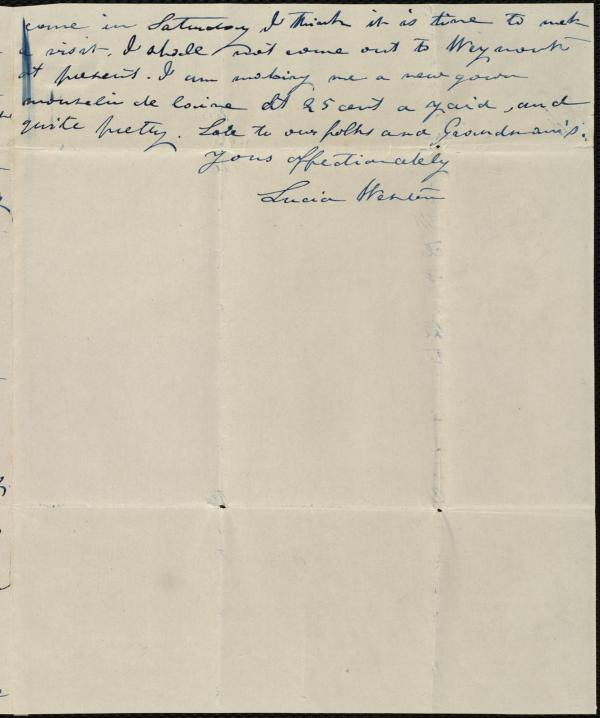 come in Saturday I think it is time to mak
a visit. I shall not come out to Weymouth
at present. I am making me a new gown
mouselin de laine at 25 cent a yard, and
quite pretty. Love to our folks and Grandmam's.
Yours affectionately
Lucia Weston